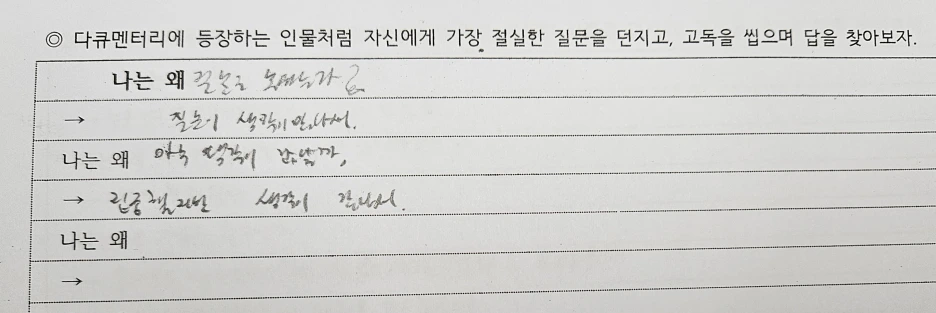 ◎ 다큐멘터리에 등장하는 인물처럼 자신에게 가장 절실한 질문을 던지고, 고독을 씹으며 답을 찾아보자.
나는 왜 질문을
→ 질문이 생각이 안나서.
나는 왜 생각이 안날까,
→ 생각이 안나서.
나는 왜
→